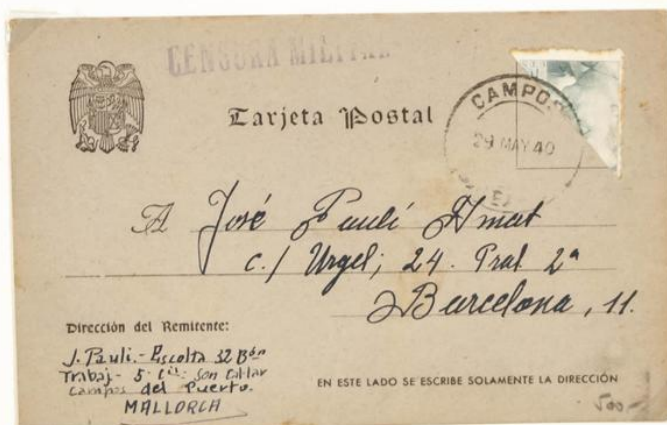 CENSURA MILITAR
Tarjeta Postal
CAMPOS
29 MAY 40
A José Paulí Amat
c./ Urgel; 24. Pral 2ª
Barcelona, 11.
Dirección del Remitente:
J. Pauli.- Escolta 32 Bón
Trabaj- 5 Cía: Son Catlar
Campos del Puerto.
MALLORCA
EN ESTE LADO SE ESCRIBE SOLAMENTE LA DIRECCIÓN
500